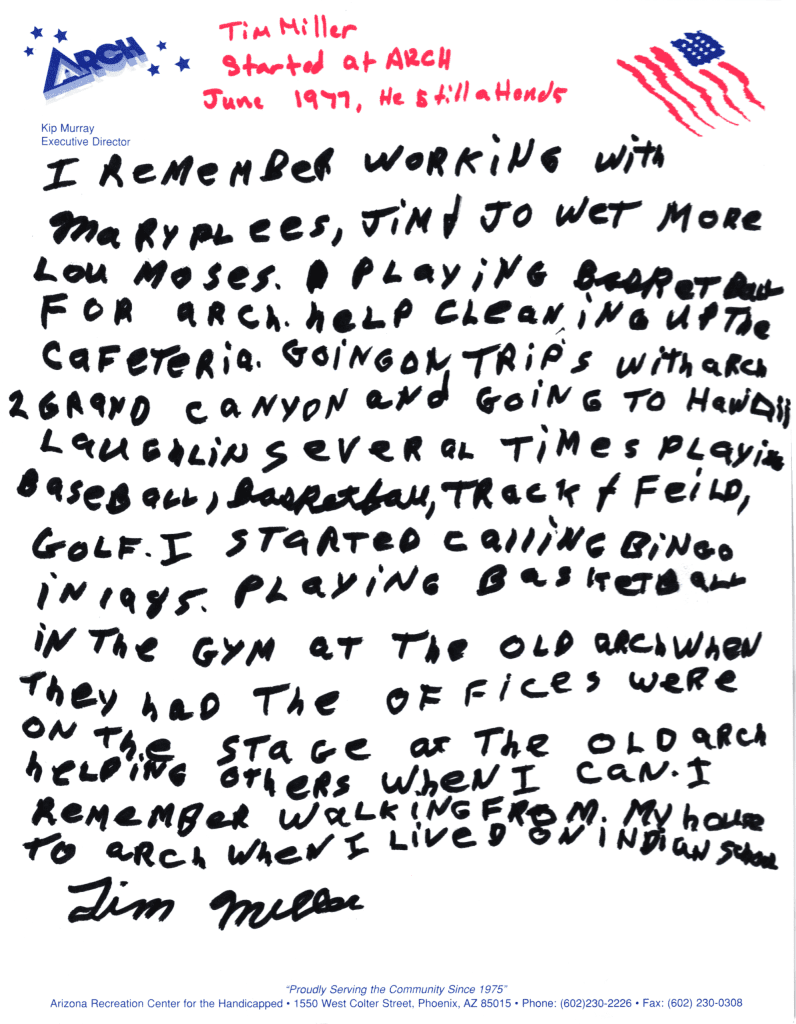 ARCH
Tim Miller
Started at ARCH
June 1977, He still attends
Kip Murray
Executive Director
I REMEMBER WORKING with
MARY PLEES, JIM & JO WET MORE
LOU MOSES. PLAYING BASKETBALL
FOR ARCH. hELP CLEANING UP The
CAFETERIA. GOING ON TRIPS with ARCH
2 GRAND CANYON and GOING TO HAWAII
LAUGHLIN SEVERAL TIMES PLAYING
BASEBALL, basketball, TRACK & FEILD,
GOLF. I STARTED CALLING BINGO
IN 1985. PLAYING BASKETBALL
IN The GYM AT The OLD ARCH WHEN
They hAD The OFFICES WERE
ON The STAGE at The OLD ARCH
hELPING OTHERS WHEN I CAN. I
REMEMBER WALKING FROM. My house
TO ARCH WHEN I LIVED ON INDIAN SCHOOL
Tim Miller
"Proudly Serving the Community Since 1975"
Arizona Recreation Center for the Handicapped • 1550 West Colter Street, Phoenix, AZ 85015 • Phone: (602)230-2226 • Fax: (602) 230-0308